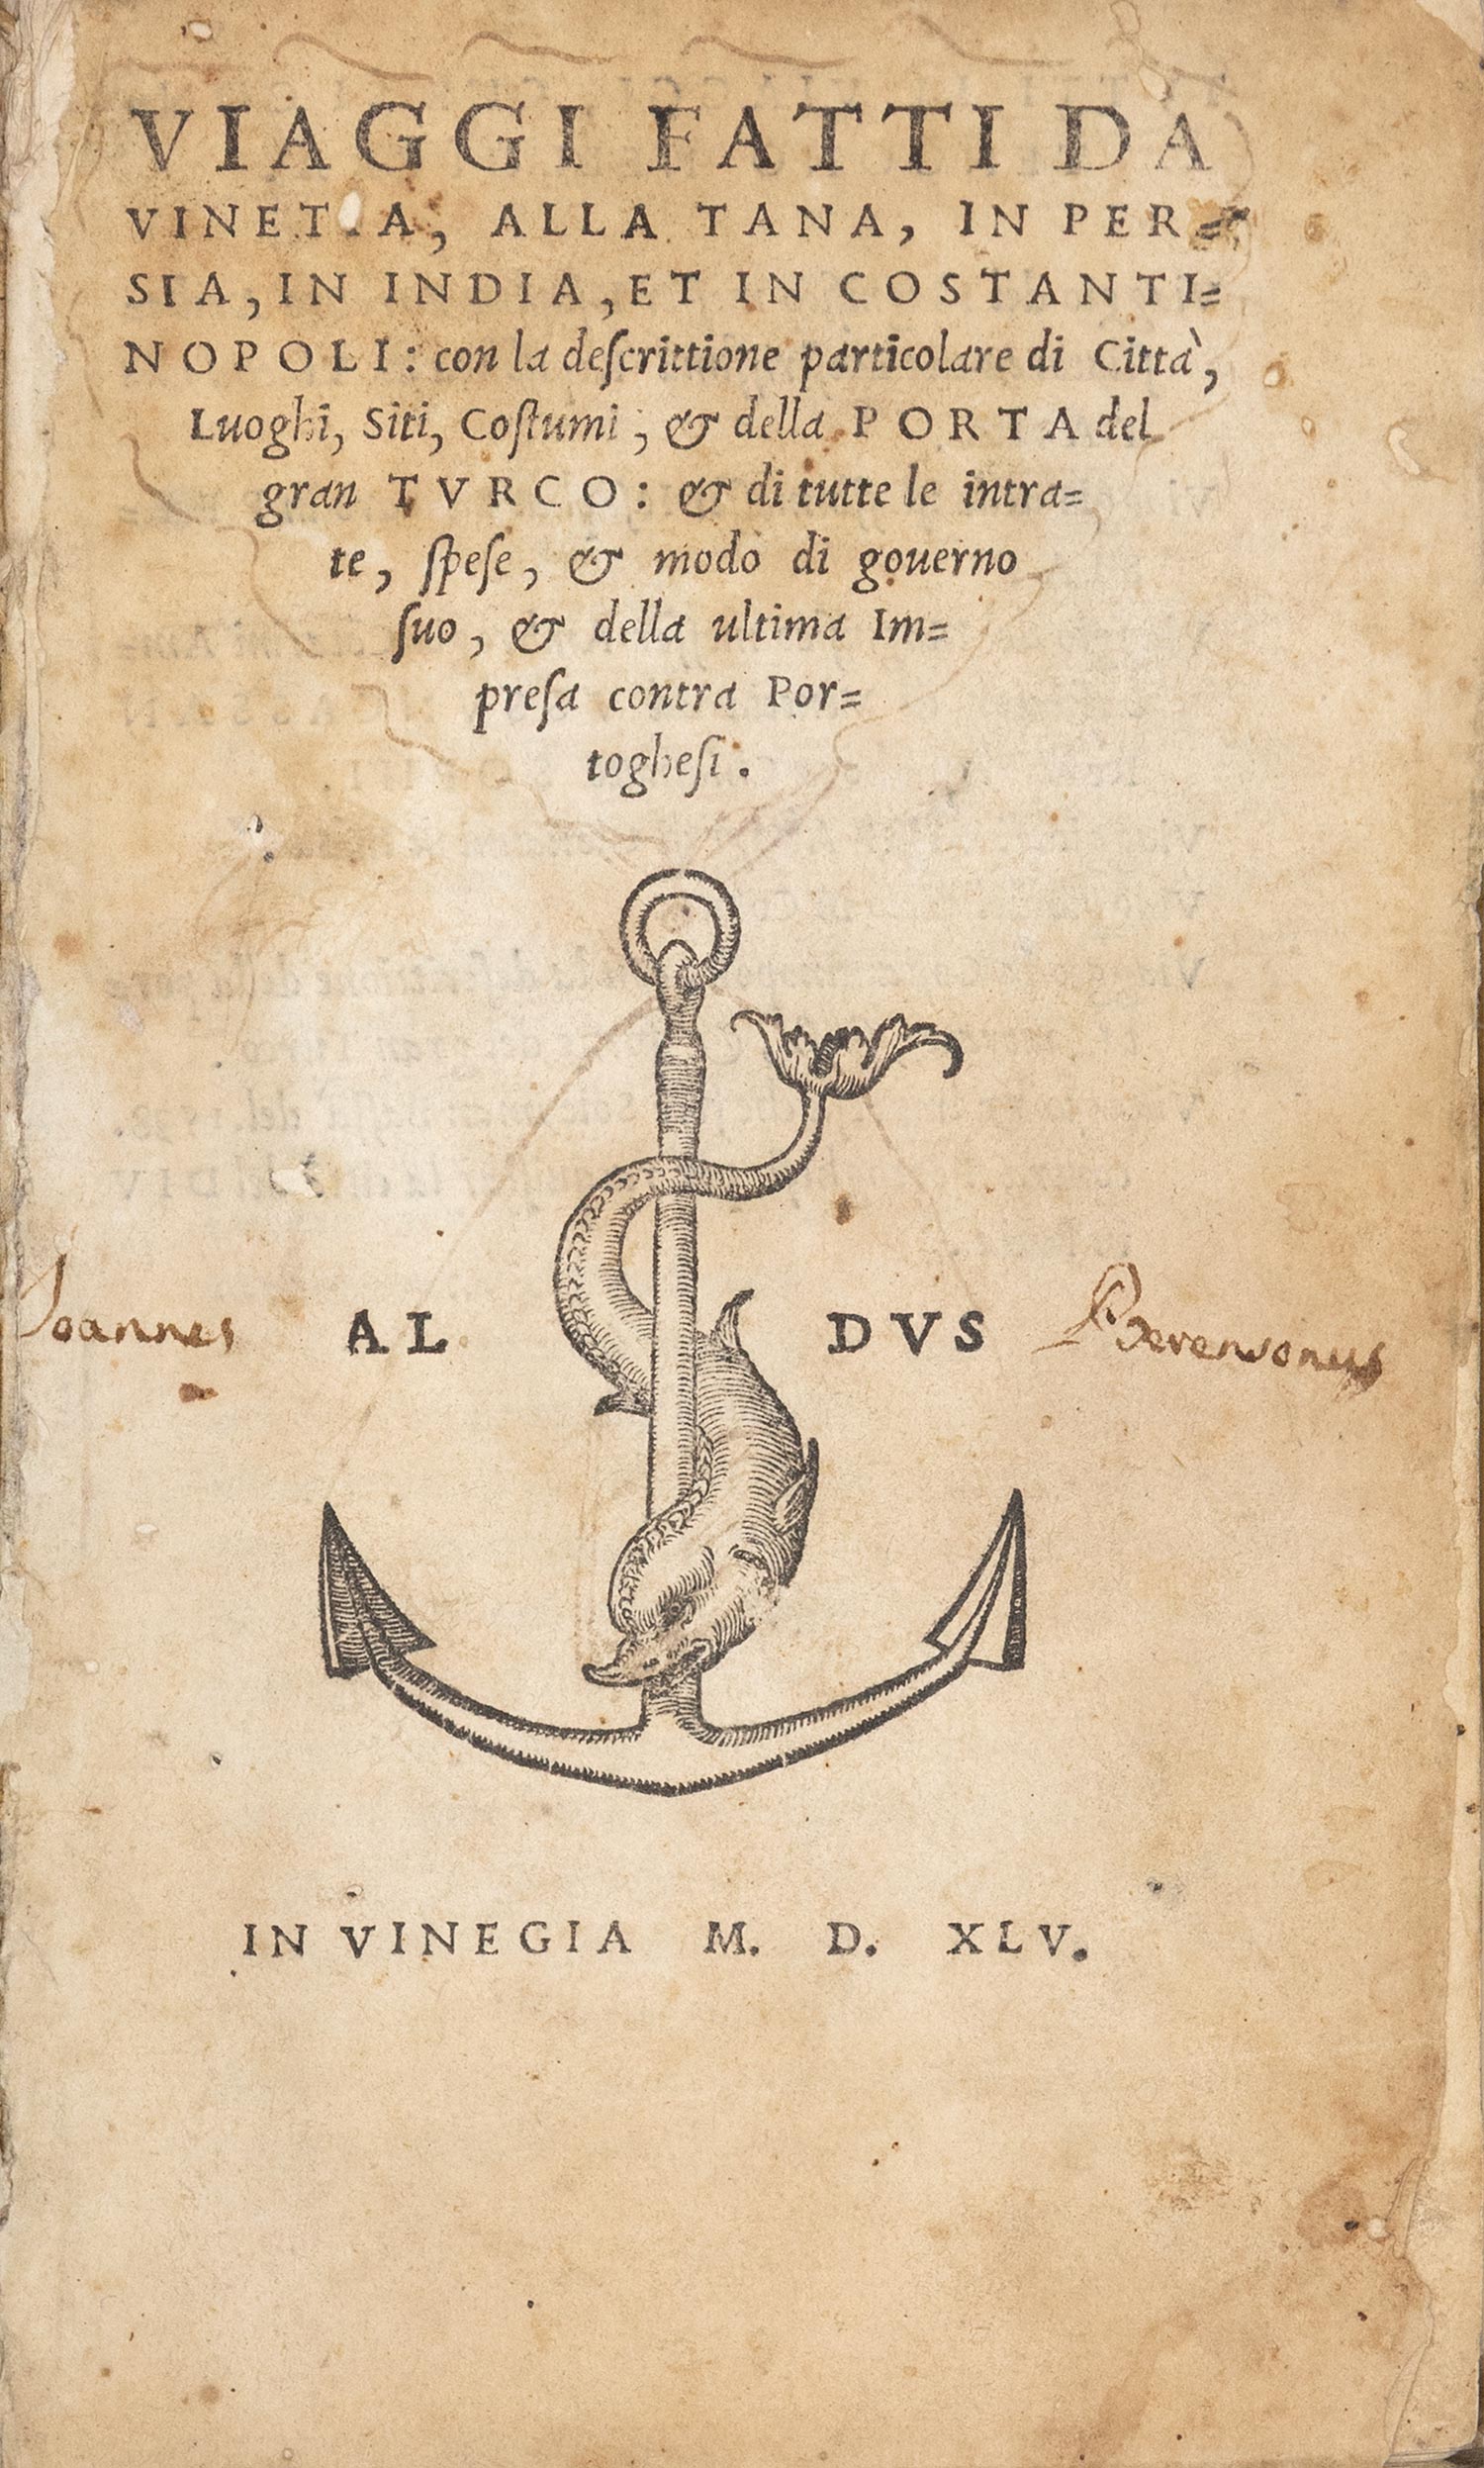 VIAGGI FATTI DA
VINETIA, ALLA TANA, IN PER=
SIA, IN INDIA, ET IN COSTANTI=
NOPOLI: con la deſcrittione particolare di Città,
Luoghi, Siti, Coſtumi, & della PORTA del
gran TVRCO: & di tutte le intra=
te, ſpeſe, & modo di gouerno
ſuo, & della ultima Im=
preſa contra Por=
togheſi.
Joannes AL DVS
IN VINEGIA M. D. XLV.